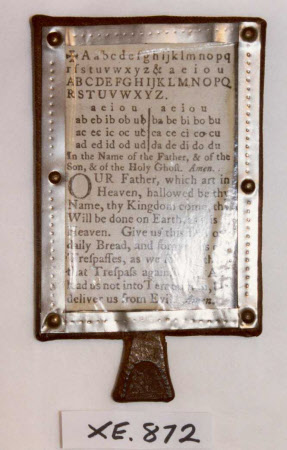 ✠ A a b c d e f g h i j k l m n o p q
r ſ s t u v w x y z & a e i o u
A B C D E F G H I J K L M N O P Q
R S T U V W X Y Z.
a e i o u | a e i o u
ab eb ib ob ub | ba be bi bo bu
ac ec ic oc uc | ca ce ci co cu
ad ed id od ud | da de di do du
In the Name of the Father, & of the
Son, & of the Holy Ghoſt. Amen.
OUR Father, which art in
Heaven, hallowed be thy
Name, thy Kingdom come, thy
Will be done on Earth, as is
Heaven. Give us this
daily Bread, and forgive
Treſpaſſes, as we
that Treſpaſs again
lead us not into
deliver us from Evil. Amen.
XE.872